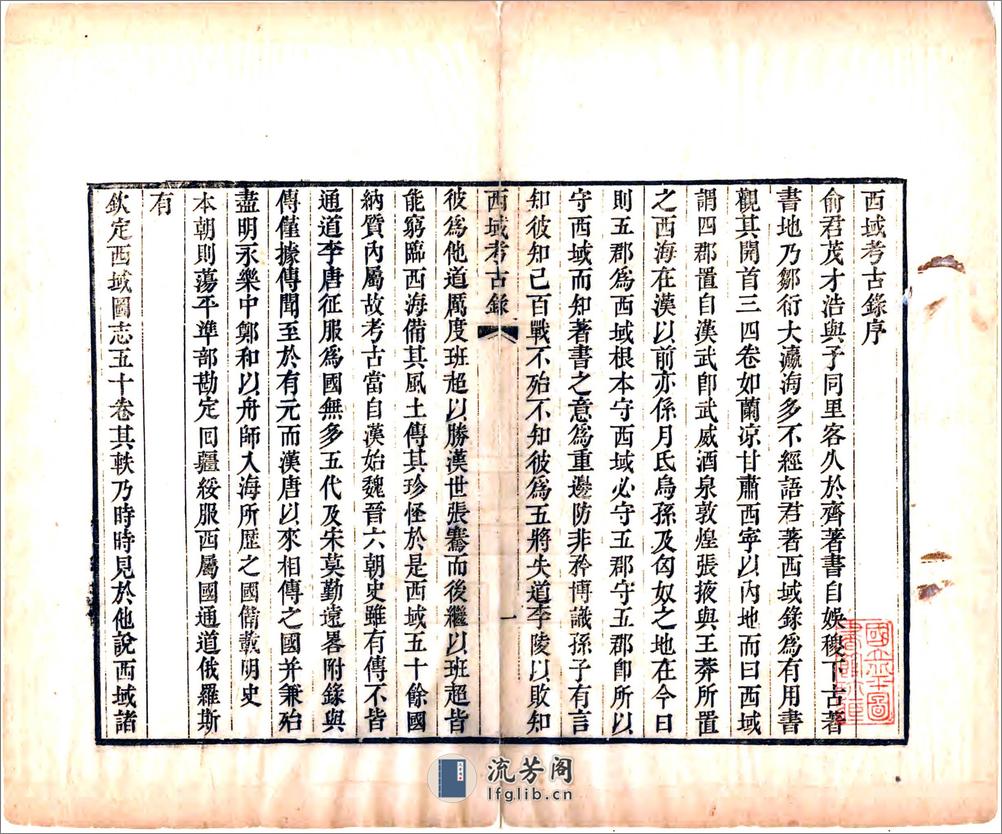 西域考古錄序
俞君茂才浩與予同里客久於齊著書自娛稷下古著
書地乃鄒衍大瀛海多不經語君著西域錄爲有用書
觀其開首三四卷如蘭涼甘肅西寧以內地而曰西域
謂四郡置自漢武卽武威酒泉敦煌張掖與王莽所置
之西海在漢以前亦係月氏烏孫及匈奴之地在今日
則五郡爲西域根本守西域必守五郡守五郡卽所以
守西域而知著書之意爲重邊防非矜博識孫子有言
知彼知己百戰不殆不知彼爲五將失道李陵以敗知
西域考古錄
一
彼爲他道厲度班超以勝漢世張騫而後繼以班超皆
能窮臨西海備其風土傳其珍怪於是西域五十餘國
納質內屬故考古當自漢始魏晉六朝史雖有傳不皆
通道李唐征服爲國無多五代及宋莫勤遠畧附錄與
傳僅據傳聞至於有元而漢唐以來相傳之國并兼殆
盡明永樂中鄭和以舟師入海所歷之國備載明史
本朝則蕩平準部勘定回疆綏服西屬國通道俄羅斯
有
欽定西域圖志五十卷其軼乃時時見於他說西域諸
流芳阁
lfglib.cn